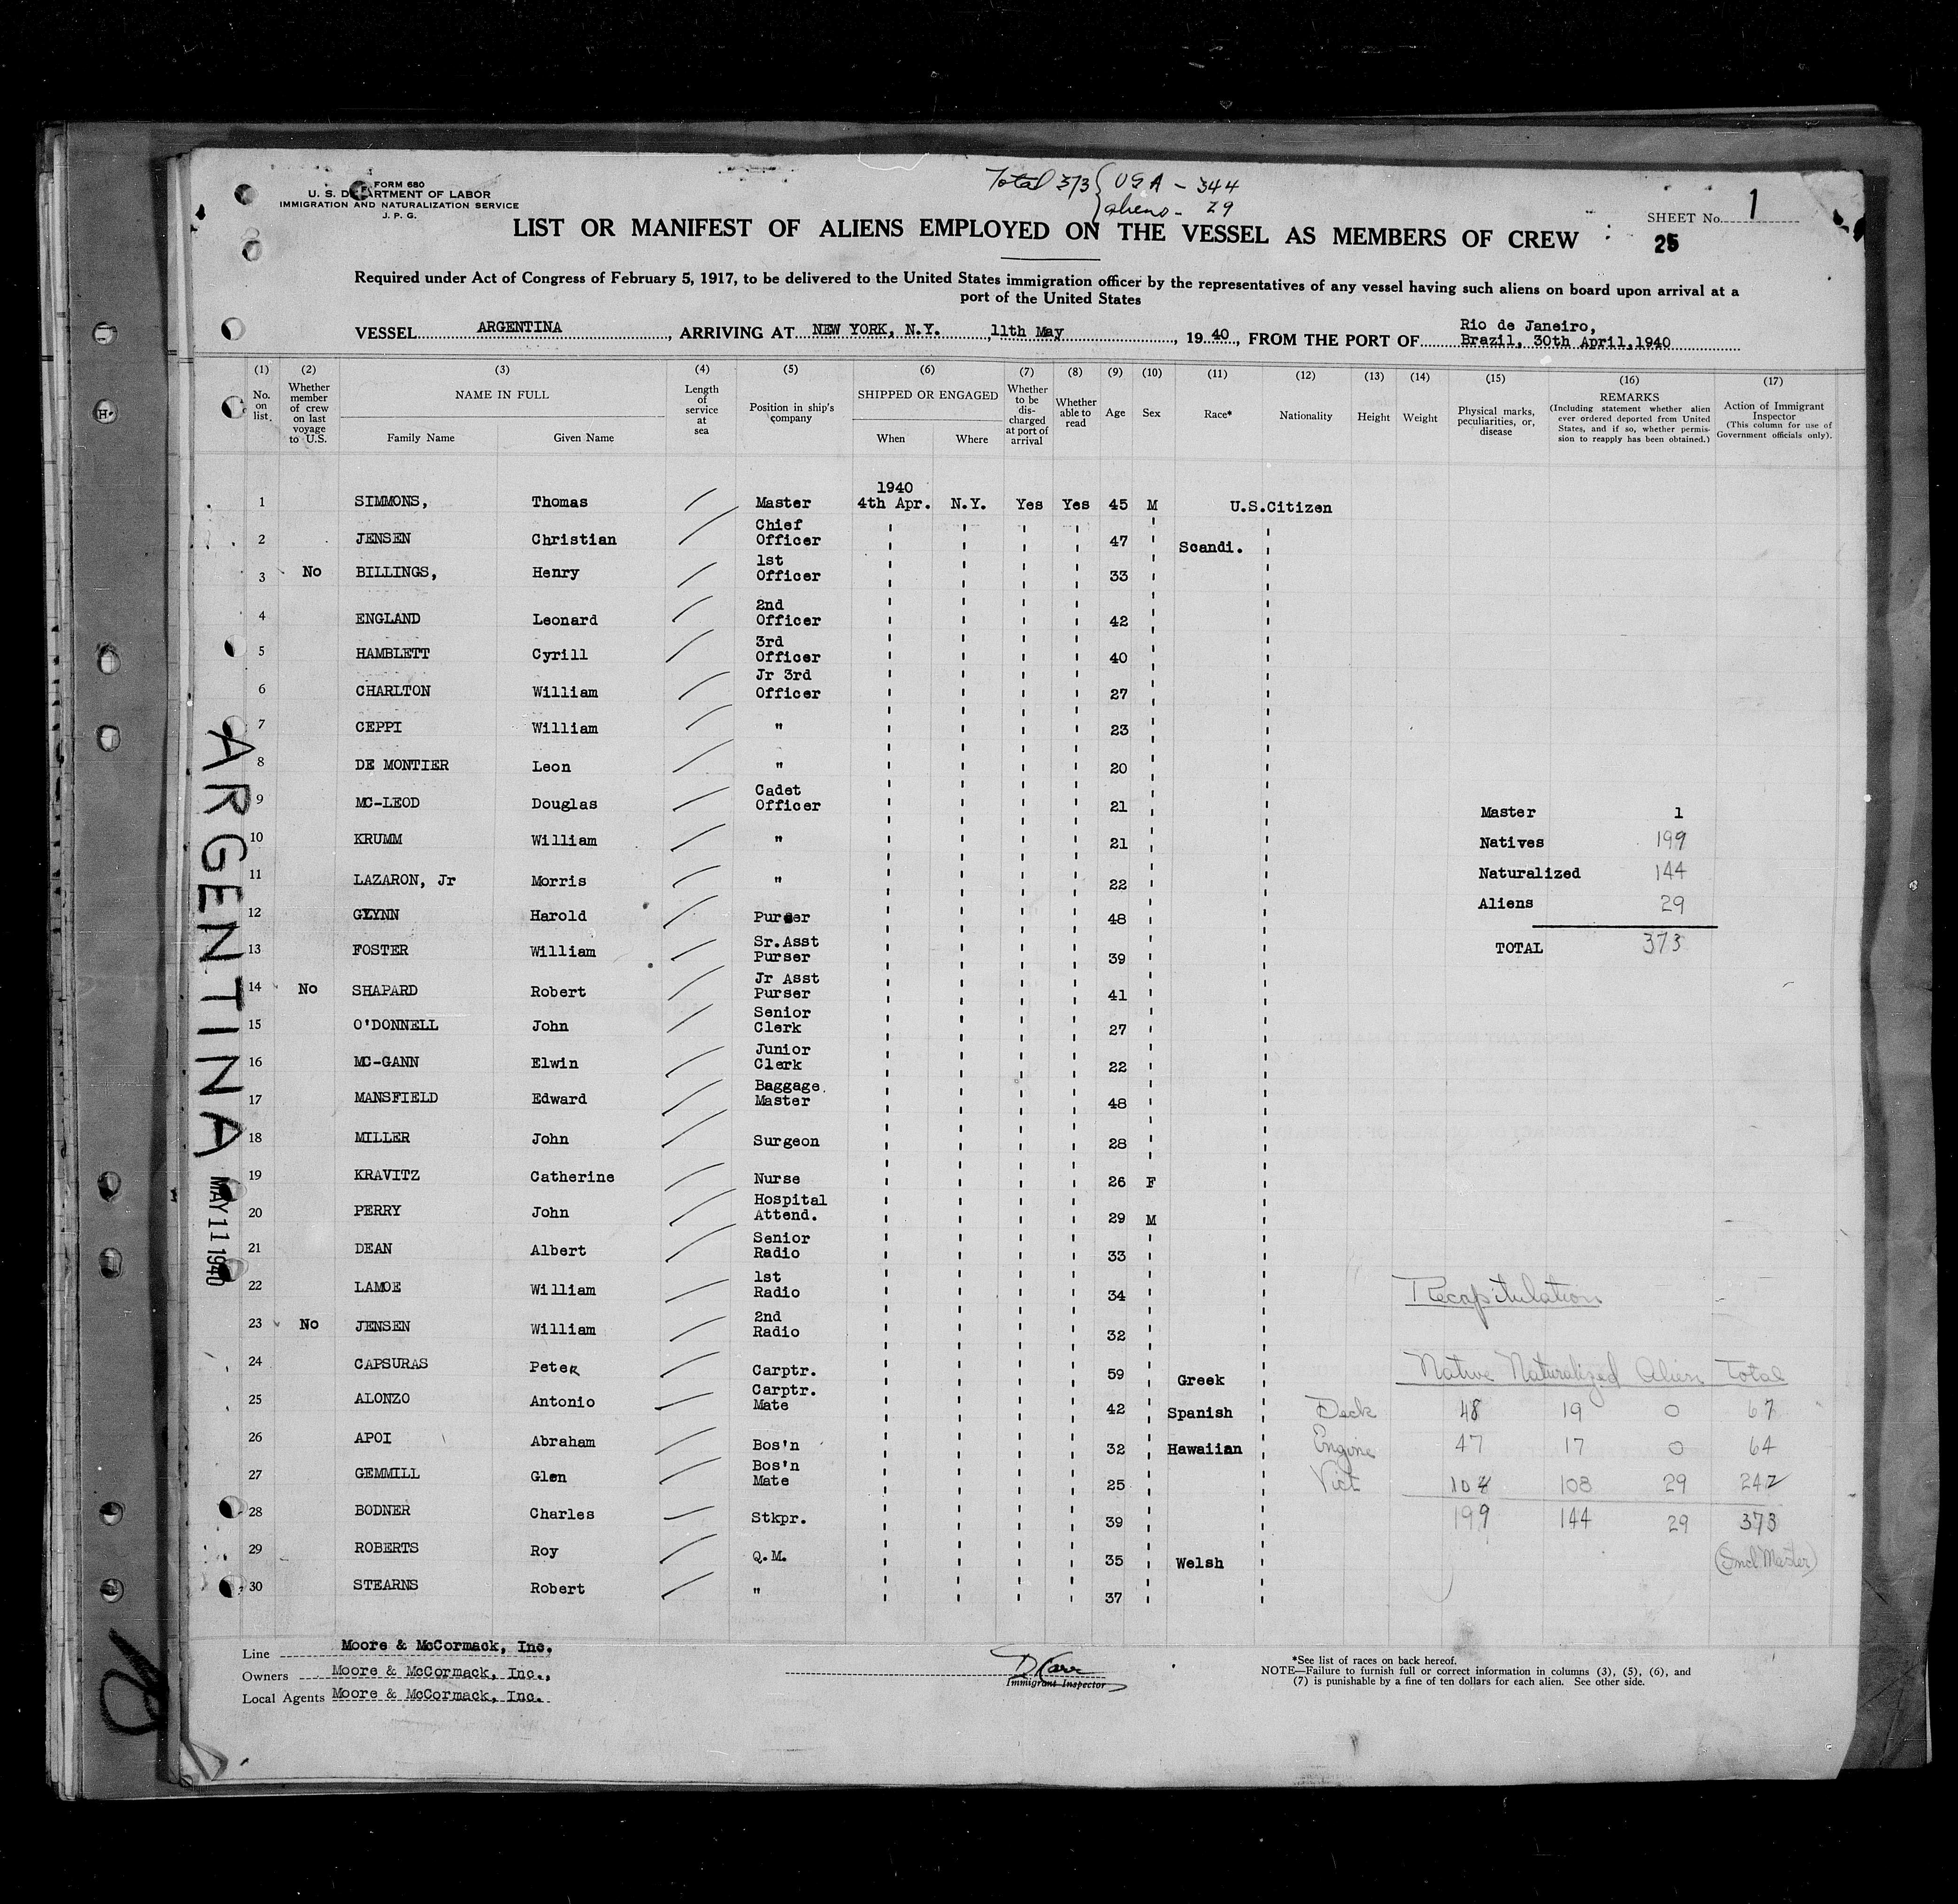 FORM 680
U. S. DEPARTMENT OF LABOR
IMMIGRATION AND NATURALIZATION SERVICE
J. P. G.
Total 373 { USA - 344
aliens - 29
LIST OR MANIFEST OF ALIENS EMPLOYED ON THE VESSEL AS MEMBERS OF CREW
SHEET No. 1
25
Required under Act of Congress of February 5, 1917, to be delivered to the United States immigration officer by the representatives of any vessel having such aliens on board upon arrival at a
port of the United States
VESSEL ARGENTINA, ARRIVING AT NEW YORK, N.Y., 11th May, 1940, FROM THE PORT OF Rio de Janeiro,
Brazil, 30th April,1940
(1) No. on list.
(2) Whether member of crew on last voyage to U.S.
(3) NAME IN FULL
Family Name
Given Name
(4) Length of service at sea
(5) Position in ship's company
(6) SHIPPED OR ENGAGED
When
Where
(7) Whether to be discharged at port of arrival
(8) Whether able to read
(9) Age
(10) Sex
(11) Race*
(12) Nationality
(13) Height
(14) Weight
(15) Physical marks, peculiarities, or, disease
(16) REMARKS
(Including statement whether alien ever ordered deported from United States, and if so, whether permission to reapply has been obtained.)
(17) Action of Immigrant Inspector
(This column for use of Government officials only).
1 SIMMONS, Thomas Master 1940 4th Apr. N.Y. Yes Yes 45 M U.S.Citizen
2 JENSEN Christian Chief Officer " " " " 47 " Scandi. "
3 No BILLINGS, Henry 1st Officer " " " " 33 " "
4 ENGLAND Leonard 2nd Officer " " " " 42 " "
5 HAMBLETT Cyrill 3rd Officer " " " " 40 " "
6 CHARLTON William Jr 3rd Officer " " " " 27 " "
7 CEPPI William " " " " " 23 " "
8 DE MONTIER Leon " " " " " 20 " "
9 MC-LEOD Douglas Cadet Officer " " " " 21 " "
10 KRUMM William " " " " " 21 " "
11 LAZARON, Jr Morris " " " " " 22 " "
12 GLYNN Harold Purser " " " " 48 " "
13 FOSTER William Sr.Asst Purser " " " " 39 " "
14 No SHAPARD Robert Jr Asst Purser " " " " 41 " "
15 O'DONNELL John Senior Clerk " " " " 27 " "
16 MC-GANN Elwin Junior Clerk " " " " 22 " "
17 MANSFIELD Edward Baggage Master " " " " 48 " "
18 MILLER John Surgeon " " " " 28 " "
19 KRAVITZ Catherine Nurse " " " " 26 F "
20 PERRY John Hospital Attend. " " " " 29 M "
21 DEAN Albert Senior Radio " " " " 33 " "
22 LAMOE William 1st Radio " " " " 34 " "
23 No JENSEN William 2nd Radio " " " " 32 " "
24 CAPSURAS Peter Carptr. " " " " 59 " Greek "
25 ALONZO Antonio Carptr. Mate " " " " 42 " Spanish "
26 APOI Abraham Bos'n " " " " 32 " Hawaiian "
27 GEMMILL Glen Bos'n Mate " " " " 25 " "
28 BODNER Charles Stkpr. " " " " 39 " "
29 ROBERTS Roy Q.M. " " " " 35 " Welsh "
30 STEARNS Robert " " " " " 37 " "
Master 1
Natives 199
Naturalized 144
Aliens 29
TOTAL 373
Recapitulation
Native Naturalized Alien Total
Deck 48 19 0 67
Engine 47 17 0 64
Vict 104 108 29 242
199 144 29 373
(Incl Master)
ARGENTINA
MAY 11 1940
Line Moore & McCormack, Inc.
Owners Moore & McCormack, Inc.,
Local Agents Moore & McCormack, Inc.
D Carr
Immigrant Inspector
*See list of races on back hereof.
NOTE—Failure to furnish full or correct information in columns (3), (5), (6), and
(7) is punishable by a fine of ten dollars for each alien. See other side.